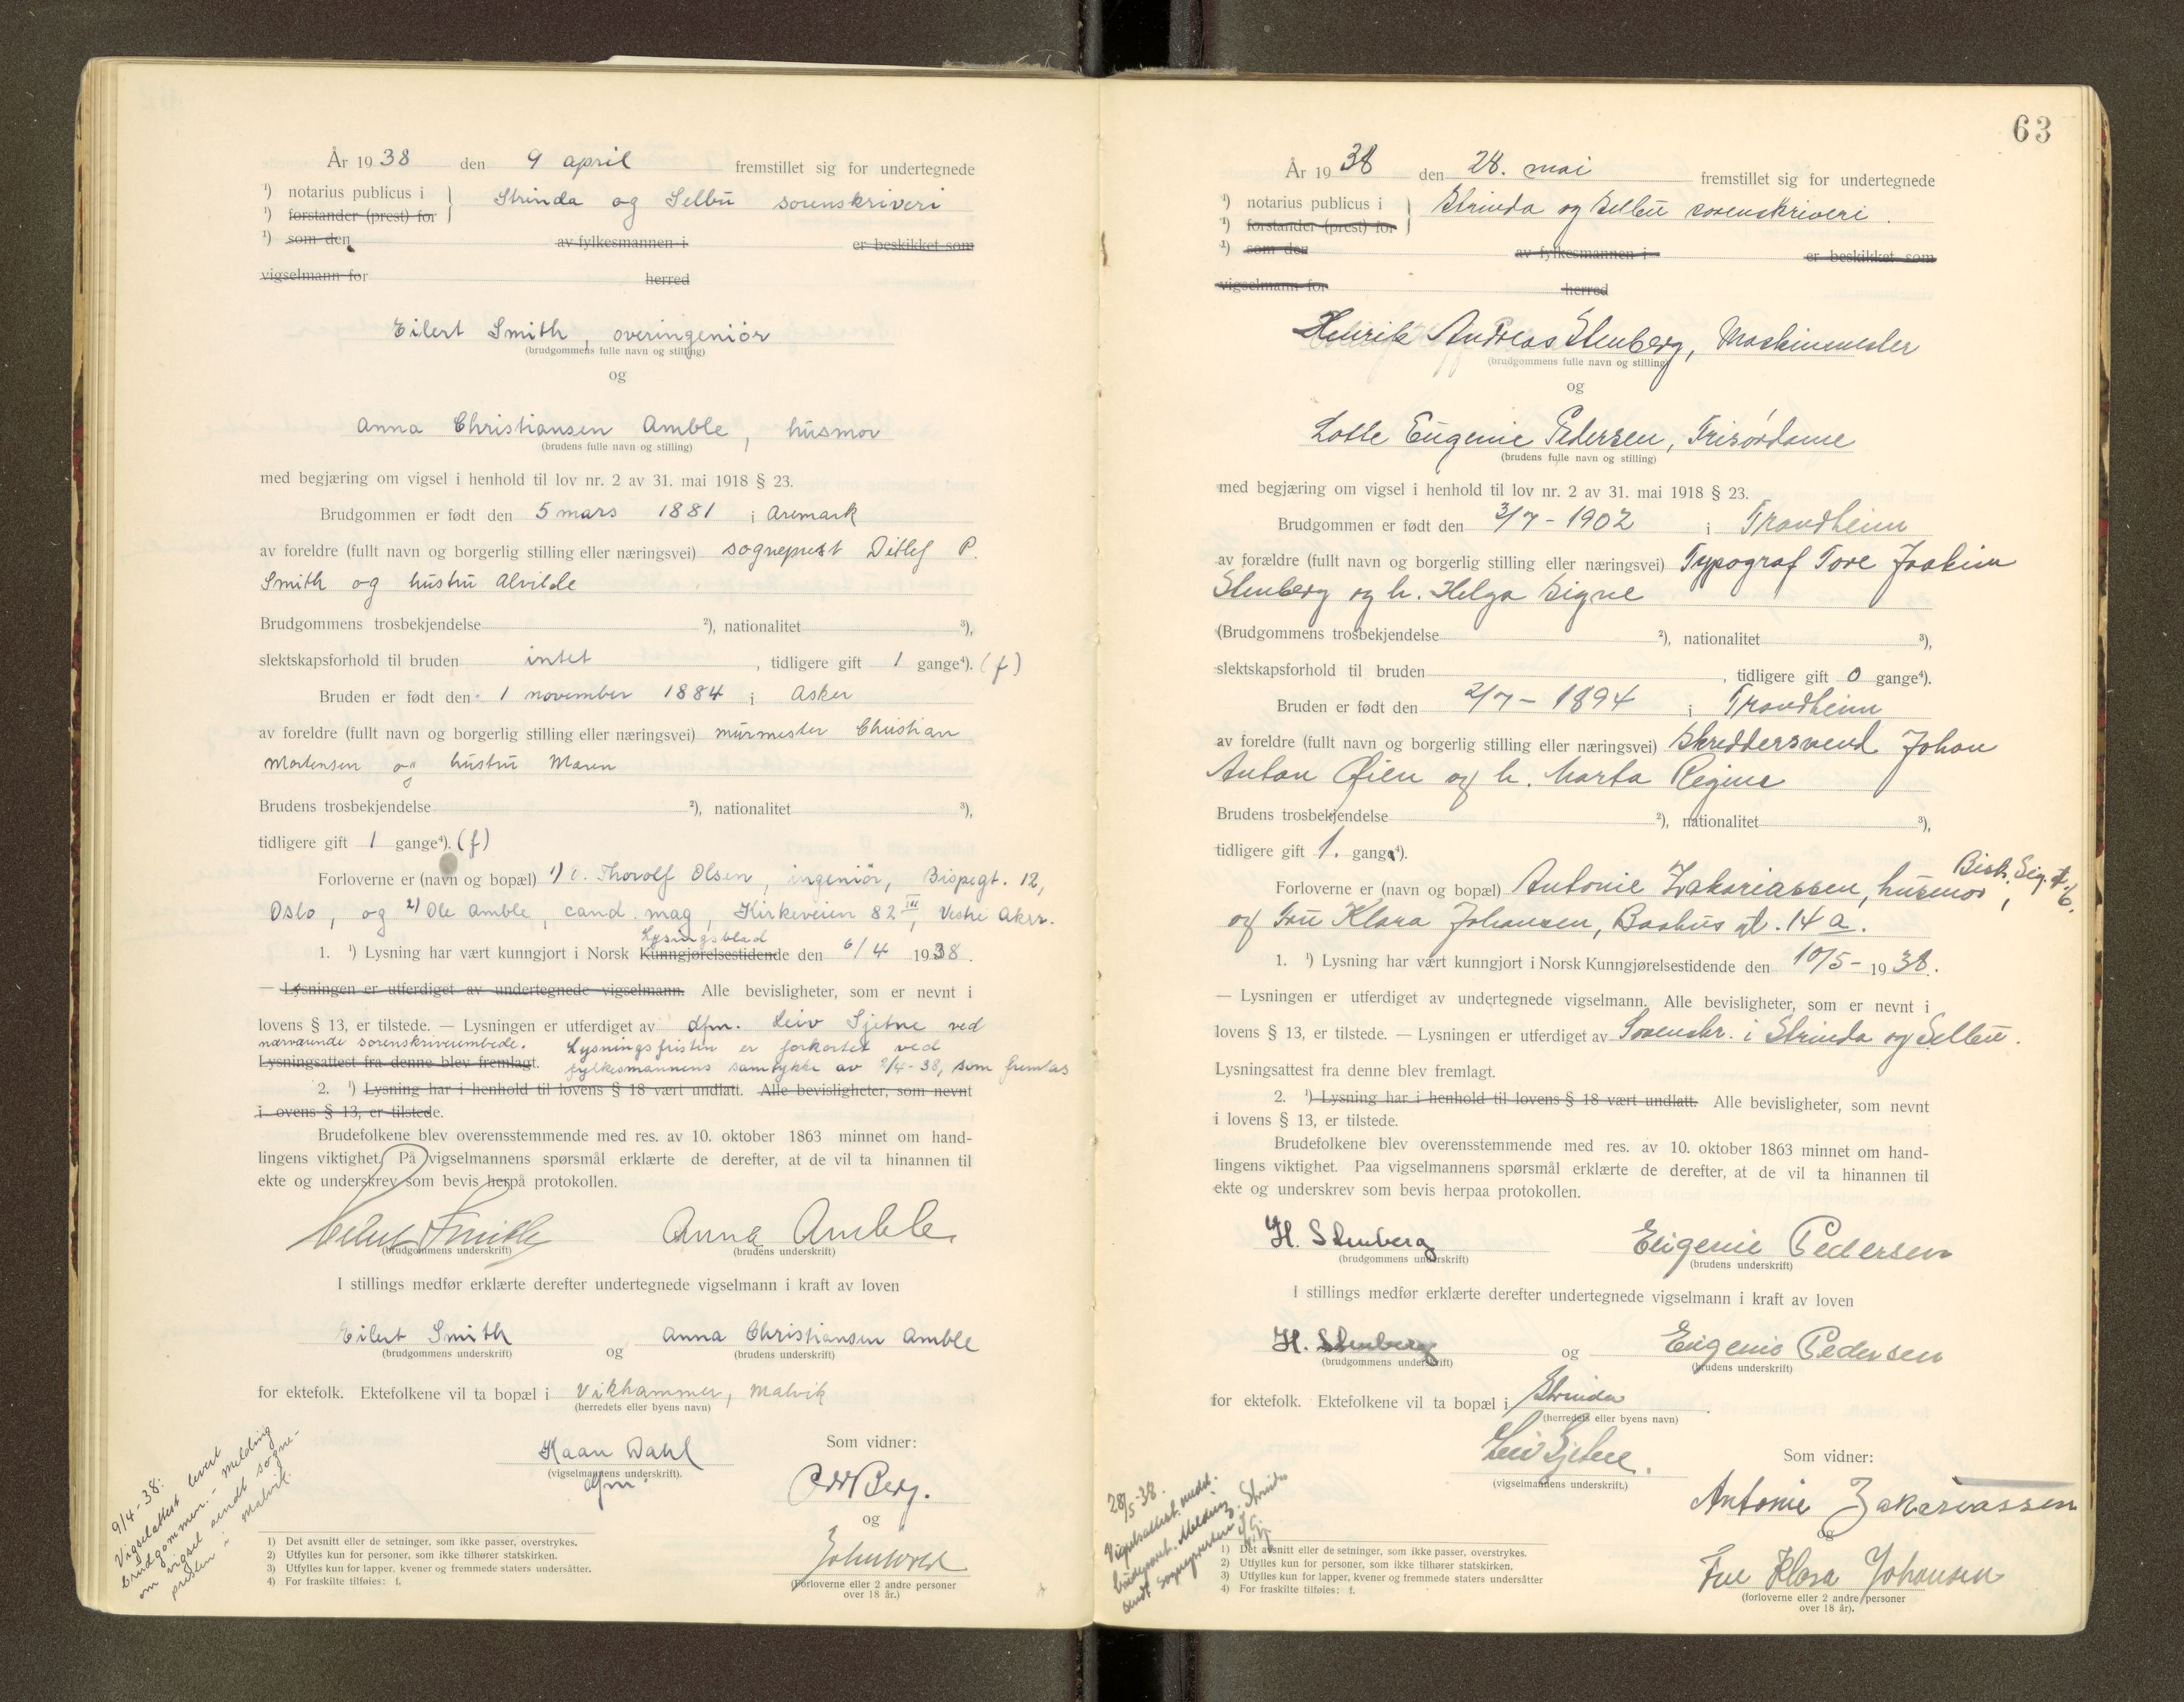 År 1938 den 9 april fremstillet sig for undertegnede
¹) notarius publicus i } Strinda og Selbu sorenskriveri
¹) forstander (prest) for
¹) som den av fylkesmannen i er beskikket som
vigselmann for herred
Eilert Smith, overingeniør
(brudgommens fulle navn og stilling)
og
Anna Christiansen Amble, husmor
(brudens fulle navn og stilling)
med begjæring om vigsel i henhold til lov nr. 2 av 31. mai 1918 § 23.
Brudgommen er født den 5 mars 1881 i Aremark
av foreldre (fullt navn og borgerlig stilling eller næringsvei) sogneprest Ditlef P.
Smith og hustru Alvilde
Brudgommens trosbekjendelse ²), nationalitet ³),
slektskapsforhold til bruden intet, tidligere gift 1 gange⁴). (f)
Bruden er født den 1 november 1884 i Asker
av foreldre (fullt navn og borgerlig stilling eller næringsvei) murmester Christian
Mortensen og hustru Maren
Brudens trosbekjendelse ²), nationalitet ³),
tidligere gift 1 gange⁴). (f)
Forloverne er (navn og bopæl) 1) O. Thorolf Olsen, ingeniør, Bispegt. 12,
Oslo, og 2) Ole Amble, cand. mag, Kirkeveien 82 III, Vestre Aker.
Lysningsblad
1. ¹) Lysning har vært kunngjort i Norsk Kunngjørelsestidende den 6/4 1938.
— Lysningen er utferdiget av undertegnede vigselmann. Alle bevisligheter, som er nevnt i
lovens § 13, er tilstede. — Lysningen er utferdiget av dfm. Leiv Sjetne ved
nærværende sorenskriverembede. Lysningsfristen er forkortet ved
Lysningsattest fra denne blev fremlagt. fylkesmannens samtykke av 2/4-38, som fremlas
2. ¹) Lysning har i henhold til lovens § 18 vært undlatt. Alle bevisligheter, som nevnt
i lovens § 13, er tilstede.
Brudefolkene blev overensstemmende med res. av 10. oktober 1863 minnet om hand-
lingens viktighet. På vigselmannens spørsmål erklærte de derefter, at de vil ta hinannen til
ekte og underskrev som bevis herpå protokollen.
Eilert Smith Anna Amble
(brudgommens underskrift) (brudens underskrift)
I stillings medfør erklærte derefter undertegnede vigselmann i kraft av loven
Eilert Smith og Anna Christiansen Amble
(brudgommens underskrift) (brudens underskrift)
for ektefolk. Ektefolkene vil ta bopæl i Vikhammer, Malvik
(herredets eller byens navn)
Haan Dahl
(vigselmannens underskrift).
dfm.
Som vidner:
Odd Berg.
og
(Forloverne eller 2 andre personer
over 18 år.)
9/4-38:
Vigselattest levert
brudgommen. - Melding
om vigsel sendt sogne-
presten i Malvik.
1) Det avsnitt eller de setninger, som ikke passer, overstrykes.
2) Utfylles kun for personer, som ikke tilhører statskirken.
3) Utfylles kun for lapper, kvener og fremmede staters undersåtter.
4) For fraskilte tilføies: f.
63
År 1938 den 28. mai fremstillet sig for undertegnede
¹) notarius publicus i } Strinda og Selbu sorenskriveri.
¹) forstander (prest) for
¹) som den av fylkesmannen i er beskikket som
vigselmann for herred
Henrik Andreas Stenberg, Maskinmester
(brudgommens fulle navn og stilling)
og
Lotte Eugenie Pedersen, Frisørdame
(brudens fulle navn og stilling)
med begjæring om vigsel i henhold til lov nr. 2 av 31. mai 1918 § 23.
Brudgommen er født den 3/7-1902 i Trondheim
av forældre (fullt navn og borgerlig stilling eller næringsvei) Typograf Tore Joakim
Stenberg og h. Helga Signe
(Brudgommens trosbekjendelse ²), nationalitet ³),
slektskapsforhold til bruden , tidligere gift 0 gange⁴).
Bruden er født den 2/7-1894 i Trondheim
av foreldre (fullt navn og borgerlig stilling eller næringsvei) Skreddersvend Johan
Anton Øien og h. Marta Regine
Brudens trosbekjendelse ²), nationalitet ³),
tidligere gift 1. gange⁴).
Forloverne er (navn og bopæl) Antonie Zakariassen, husmor, Bisk. Sig. gt. 6.
og Fru Klara Johansen, Baahus gt. 14 a.
1. ¹) Lysning har vært kunngjort i Norsk Kunngjørelsestidende den 10/5-1938.
— Lysningen er utferdiget av undertegnede vigselmann. Alle bevisligheter, som er nevnt i
lovens § 13, er tilstede. — Lysningen er utferdiget av Sorenskr. i Strinda og Selbu.
Lysningsattest fra denne blev fremlagt.
2. ¹) Lysning har i henhold til lovens § 18 vært undlatt. Alle bevisligheter, som nevnt
i lovens § 13, er tilstede.
Brudefolkene blev overensstemmende med res. av 10. oktober 1863 minnet om hand-
lingens viktighet. Paa vigselmannens spørsmål erklærte de derefter, at de vil ta hinannen til
ekte og underskrev som bevis herpaa protokollen.
H. Stenberg Eugenie Pedersen
(brudgommens underskrift) (brudens underskrift)
I stillings medfør erklærte derefter undertegnede vigselmann i kraft av loven
H. Stenberg og Eugenie Pedersen
(brudgommens underskrift) (brudens underskrift)
for ektefolk. Ektefolkene vil ta bopæl i Strinda
(herredets eller byens navn)
Leiv Sjetne.
(vigselmannens underskrift.)
Som vidner:
Antonie Zakariassen
og
Fru Klara Johansen
(forloverne eller 2 andre personer
over 18 år).
28/5-38.
Vigselsattest medd.
brudeparet. Melding
sendt sogneprestene i Strinda
1) Det avsnitt eller de setninger, som ikke passer, overstrykes.
2) Utfylles kun for personer, som ikke tilhører statskirken.
3) Utfylles kun for lapper, kvener og fremmede staters undersåtter
4) For fraskilte tilføies: f.